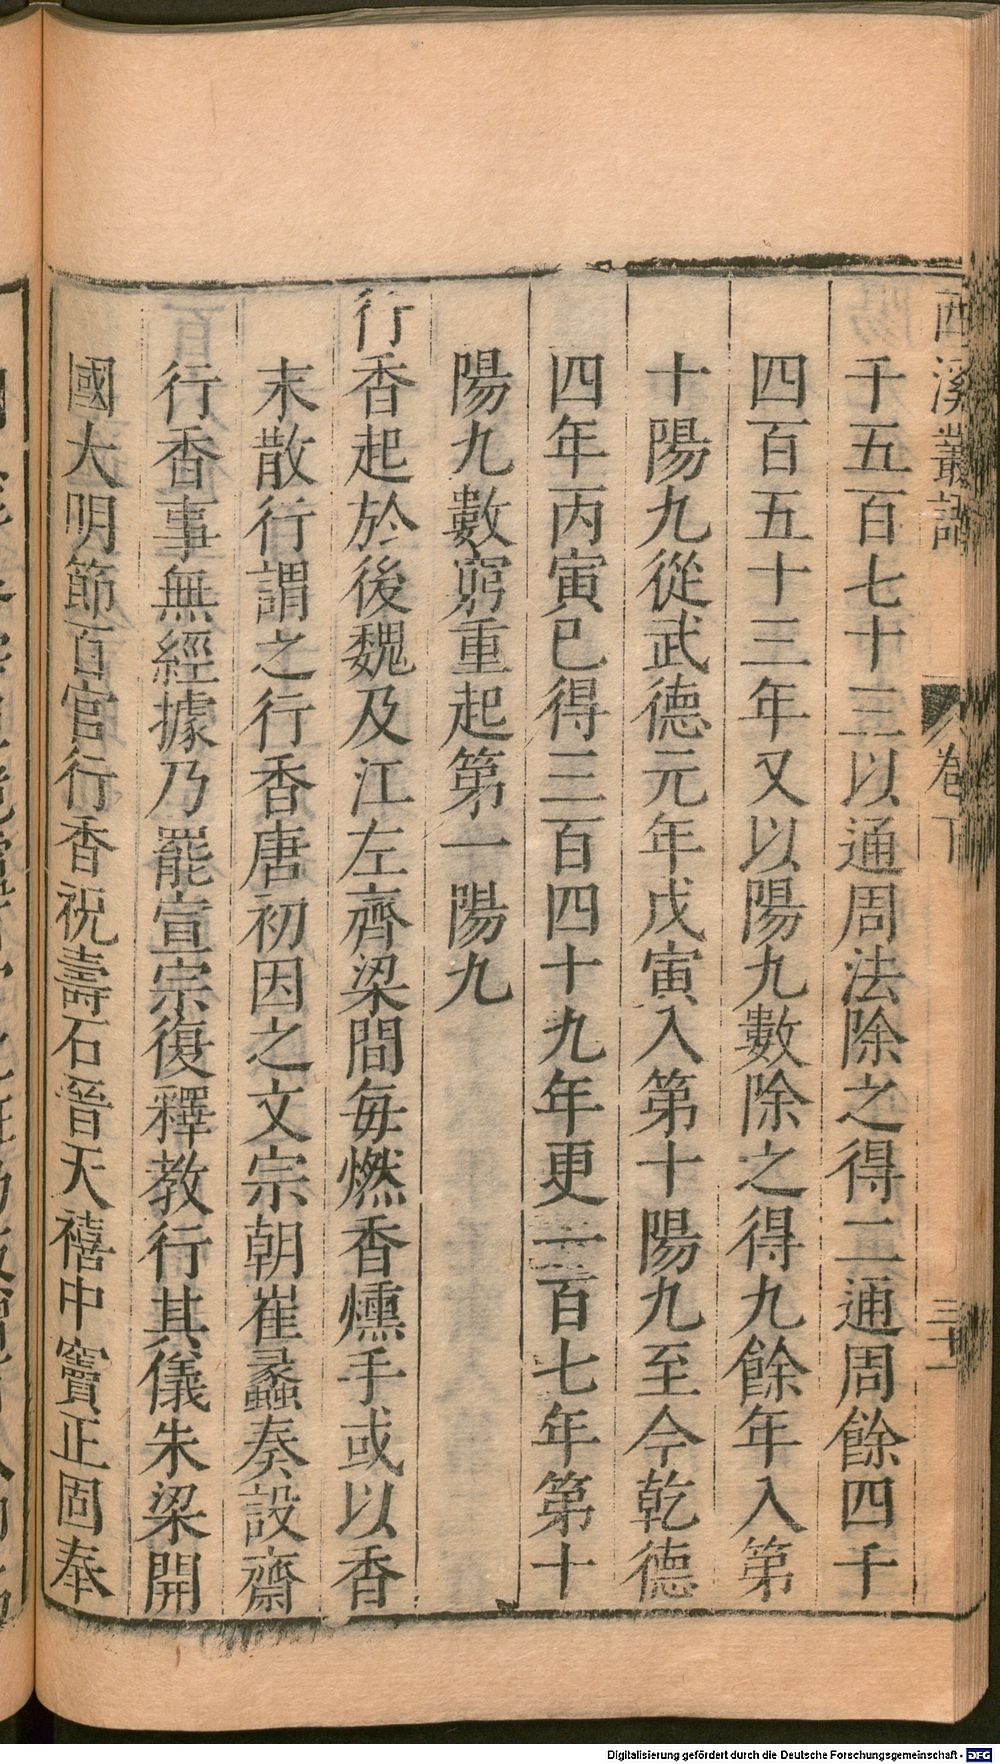 西溪叢語
卷下
三十一
千五百七十三以通周法除之得二通周餘四千
四百五十三年又以陽九數除之得九餘年入第
十陽九從武德元年戊寅入第十陽九至今乾德
四年丙寅已得三百四十九年更一百七年第十
陽九數窮重起第一陽九
行香起於後魏及江左齊梁間每燃香燻手或以香
末散行謂之行香唐初因之文宗朝崔蠡奏設齋
行香事無經據乃罷宣宗復釋教行其儀朱梁開
國大明節百官行香祝壽石晉天禧中竇正固奉
Digitalisierung gefördert durch die Deutsche Forschungsgemeinschaft - DFG